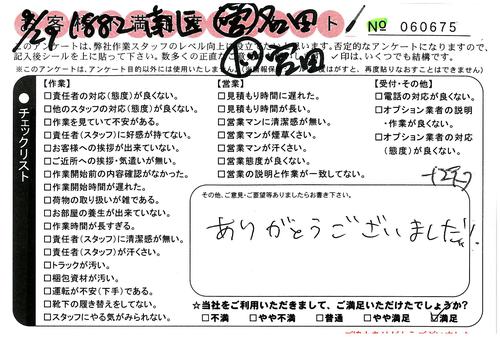 8/29 1882 南区 曽名田
宮田
No 060675
このアンケートは、弊社作業スタッフのレベル向上に役立て
います。否定的なアンケートになりますので、
記入後シールを上に貼って下さい。数多くの正直な
✓印は、いくつでも結構です。
※このアンケートは、アンケート目的以外には使用いたしません。
はがすと、再度貼りなおすことはできません)
●チェックリスト
【作業】
□責任者の対応(態度)が良くない。
□他のスタッフの対応(態度)が良くない。
□作業を見ていて不安がある。
□責任者(スタッフ)に好感が持てない。
□お客様への挨拶が出来ていない。
□ご近所への挨拶・気遣いが無い。
□作業開始前の内容確認がなかった。
□作業開始時間が遅れた。
□荷物の取り扱いが雑である。
□お部屋の養生が出来ていない。
□作業時間が長すぎる。
□責任者(スタッフ)に清潔感が無い。
□責任者(スタッフ)が汗くさい。
□トラックが汚い。
□梱包資材が汚い。
□運転が不安(下手)である。
□靴下の履き替えをしてない。
□スタッフにやる気がみられない。
【営業】
□見積もり時間に遅れた。
□見積もり時間が長い。
□営業マンに清潔感が無い。
□営業マンが煙草くさい。
□営業マンが汗くさい。
□営業態度が良くない。
□営業の説明と作業が一致してない。
【受付・その他】
□電話の対応が良くない。
□オプション業者の説明
・作業が良くない。
□オプション業者の対応
(態度)が良くない。
その他、ご意見・ご要望等ありましたらお書き下さい。
ありがとうございました!
☆当社をご利用いただきまして、ご満足いただけたでしょうか?
□不満 □やや不満 □普通 □やや満足 ☑満足